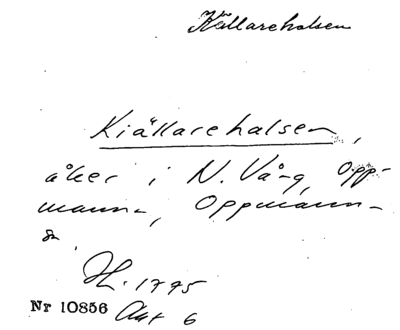 Källarehalsen
Kiällarehalsen,
åker i N. Vång, Opp-
manna, Oppmann-
a.
H. 1795
Nr 10856 Akt 6